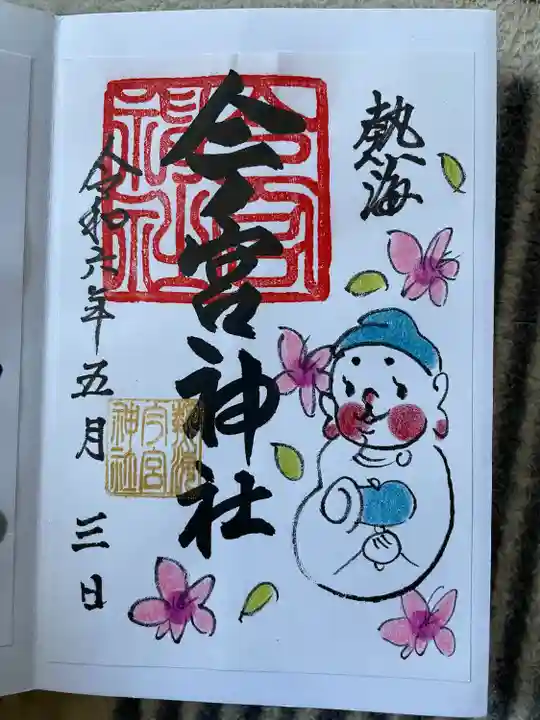 熱海
今宮神社
令和六年五月三日
今宮
神社
熱海
今宮
神社